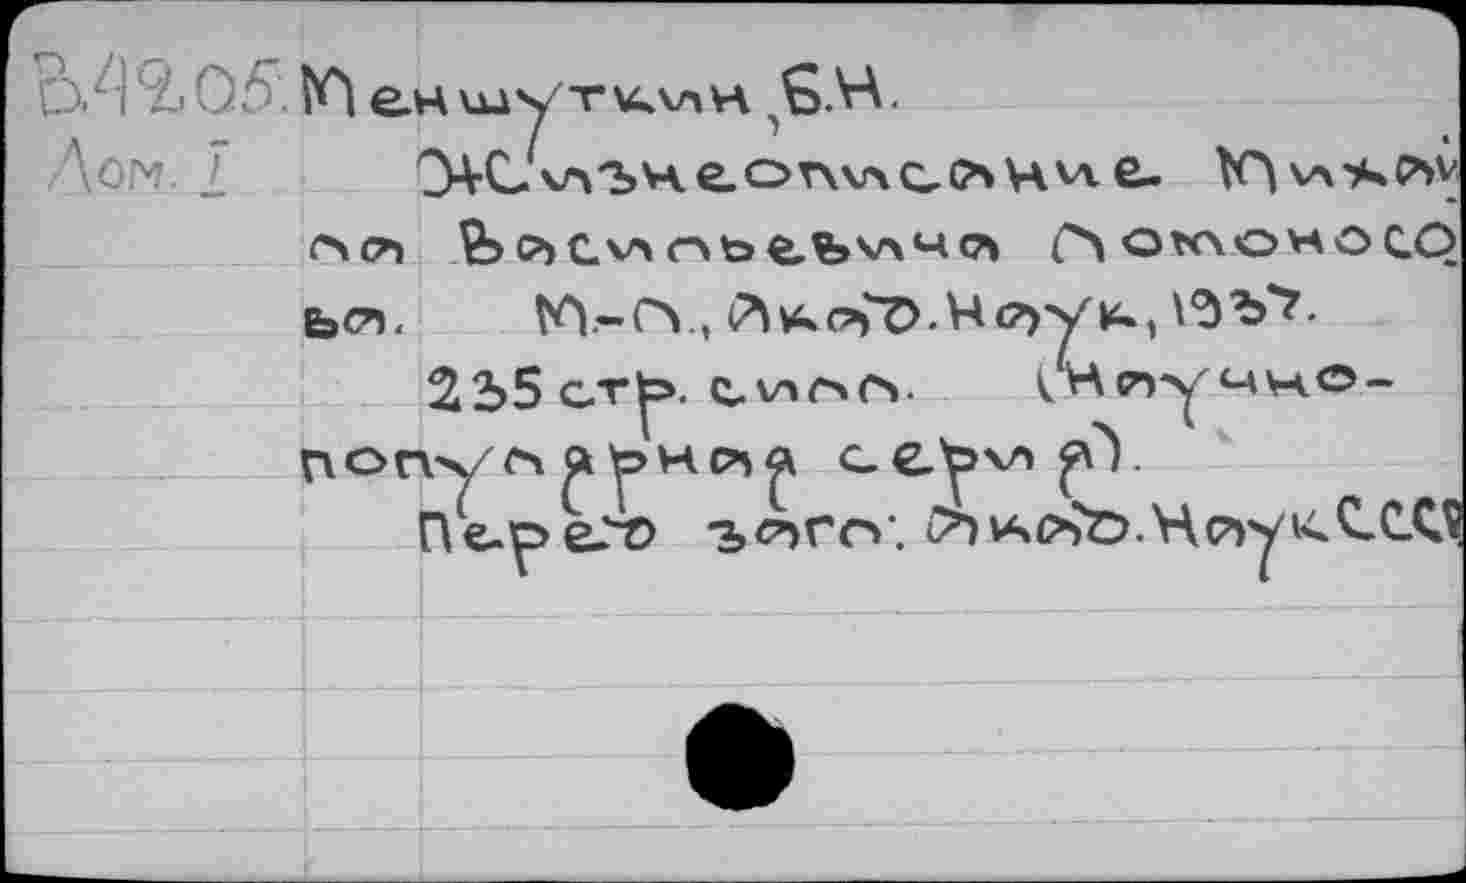 В.42.05. Меншуткин, Б.Н.
Лом. I Жизнеописание Михаи
ла Васильевича Ломоносо
ва. М.-Л., Акад. Наук, 1937.
235 стр. с илл. (Научно-
популярная серия).
Перед загл: Акад. Наук СССР